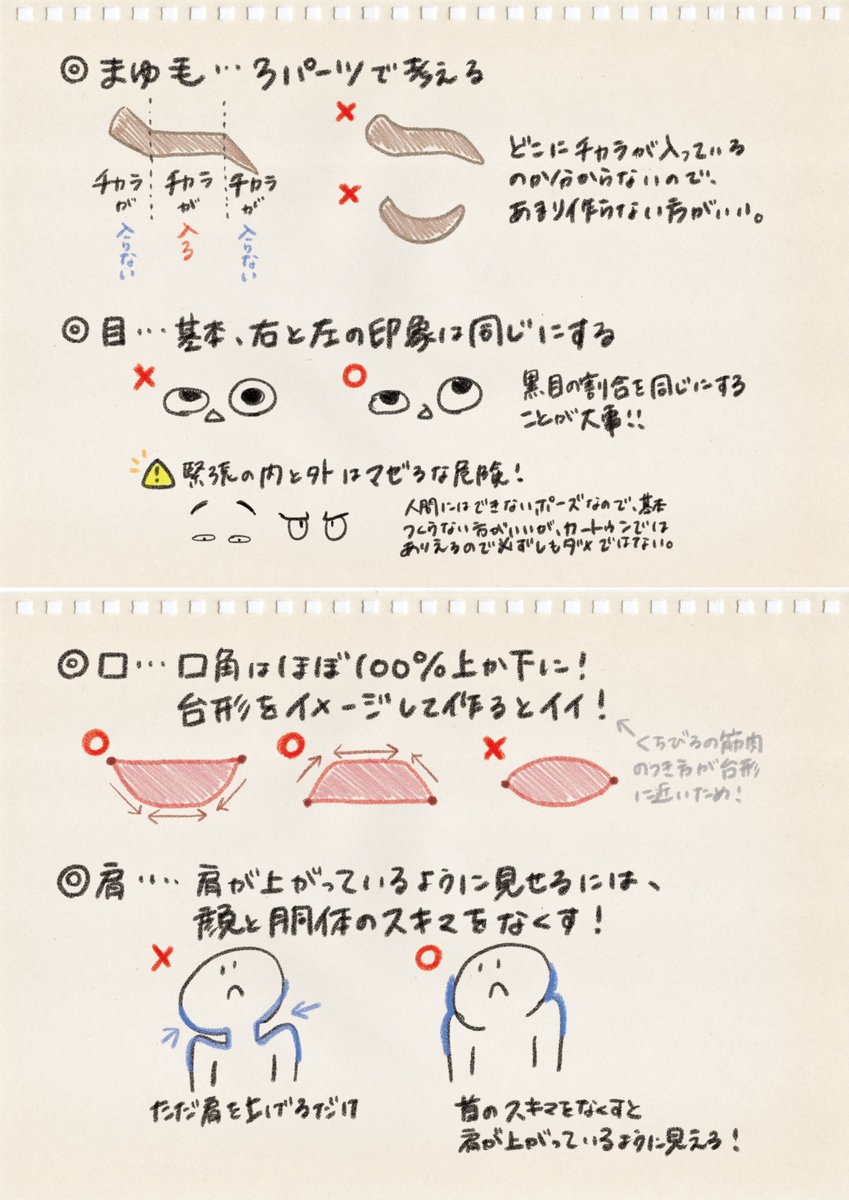 ◎ まゆ毛… 3パーツで考える
チカラが入らない
チカラが入る
チカラが入らない
どこにチカラが入っている
のか分からないので、
あまり作らない方がいい。
◎ 目… 基本、右と左の印象は同じにする
黒目の割合を同じにする
ことが大事!!
緊張の内と外はマゼるな危険!
人間にはできないポーズなので、基本
つくらない方がいいが、カートゥンでは
ありえるので必ずしもダメではない。
◎ 口… 口角はほぼ100%上か下に!
台形をイメージして作るとイイ!
くちびるの筋肉
のつき方が台形
に近いため!
◎ 肩‥‥ 肩が上がっているように見せるには、
顔と胴体のスキマをなくす!
ただ肩を上げるだけ
首のスキマをなくすと
肩が上がっているように見える!